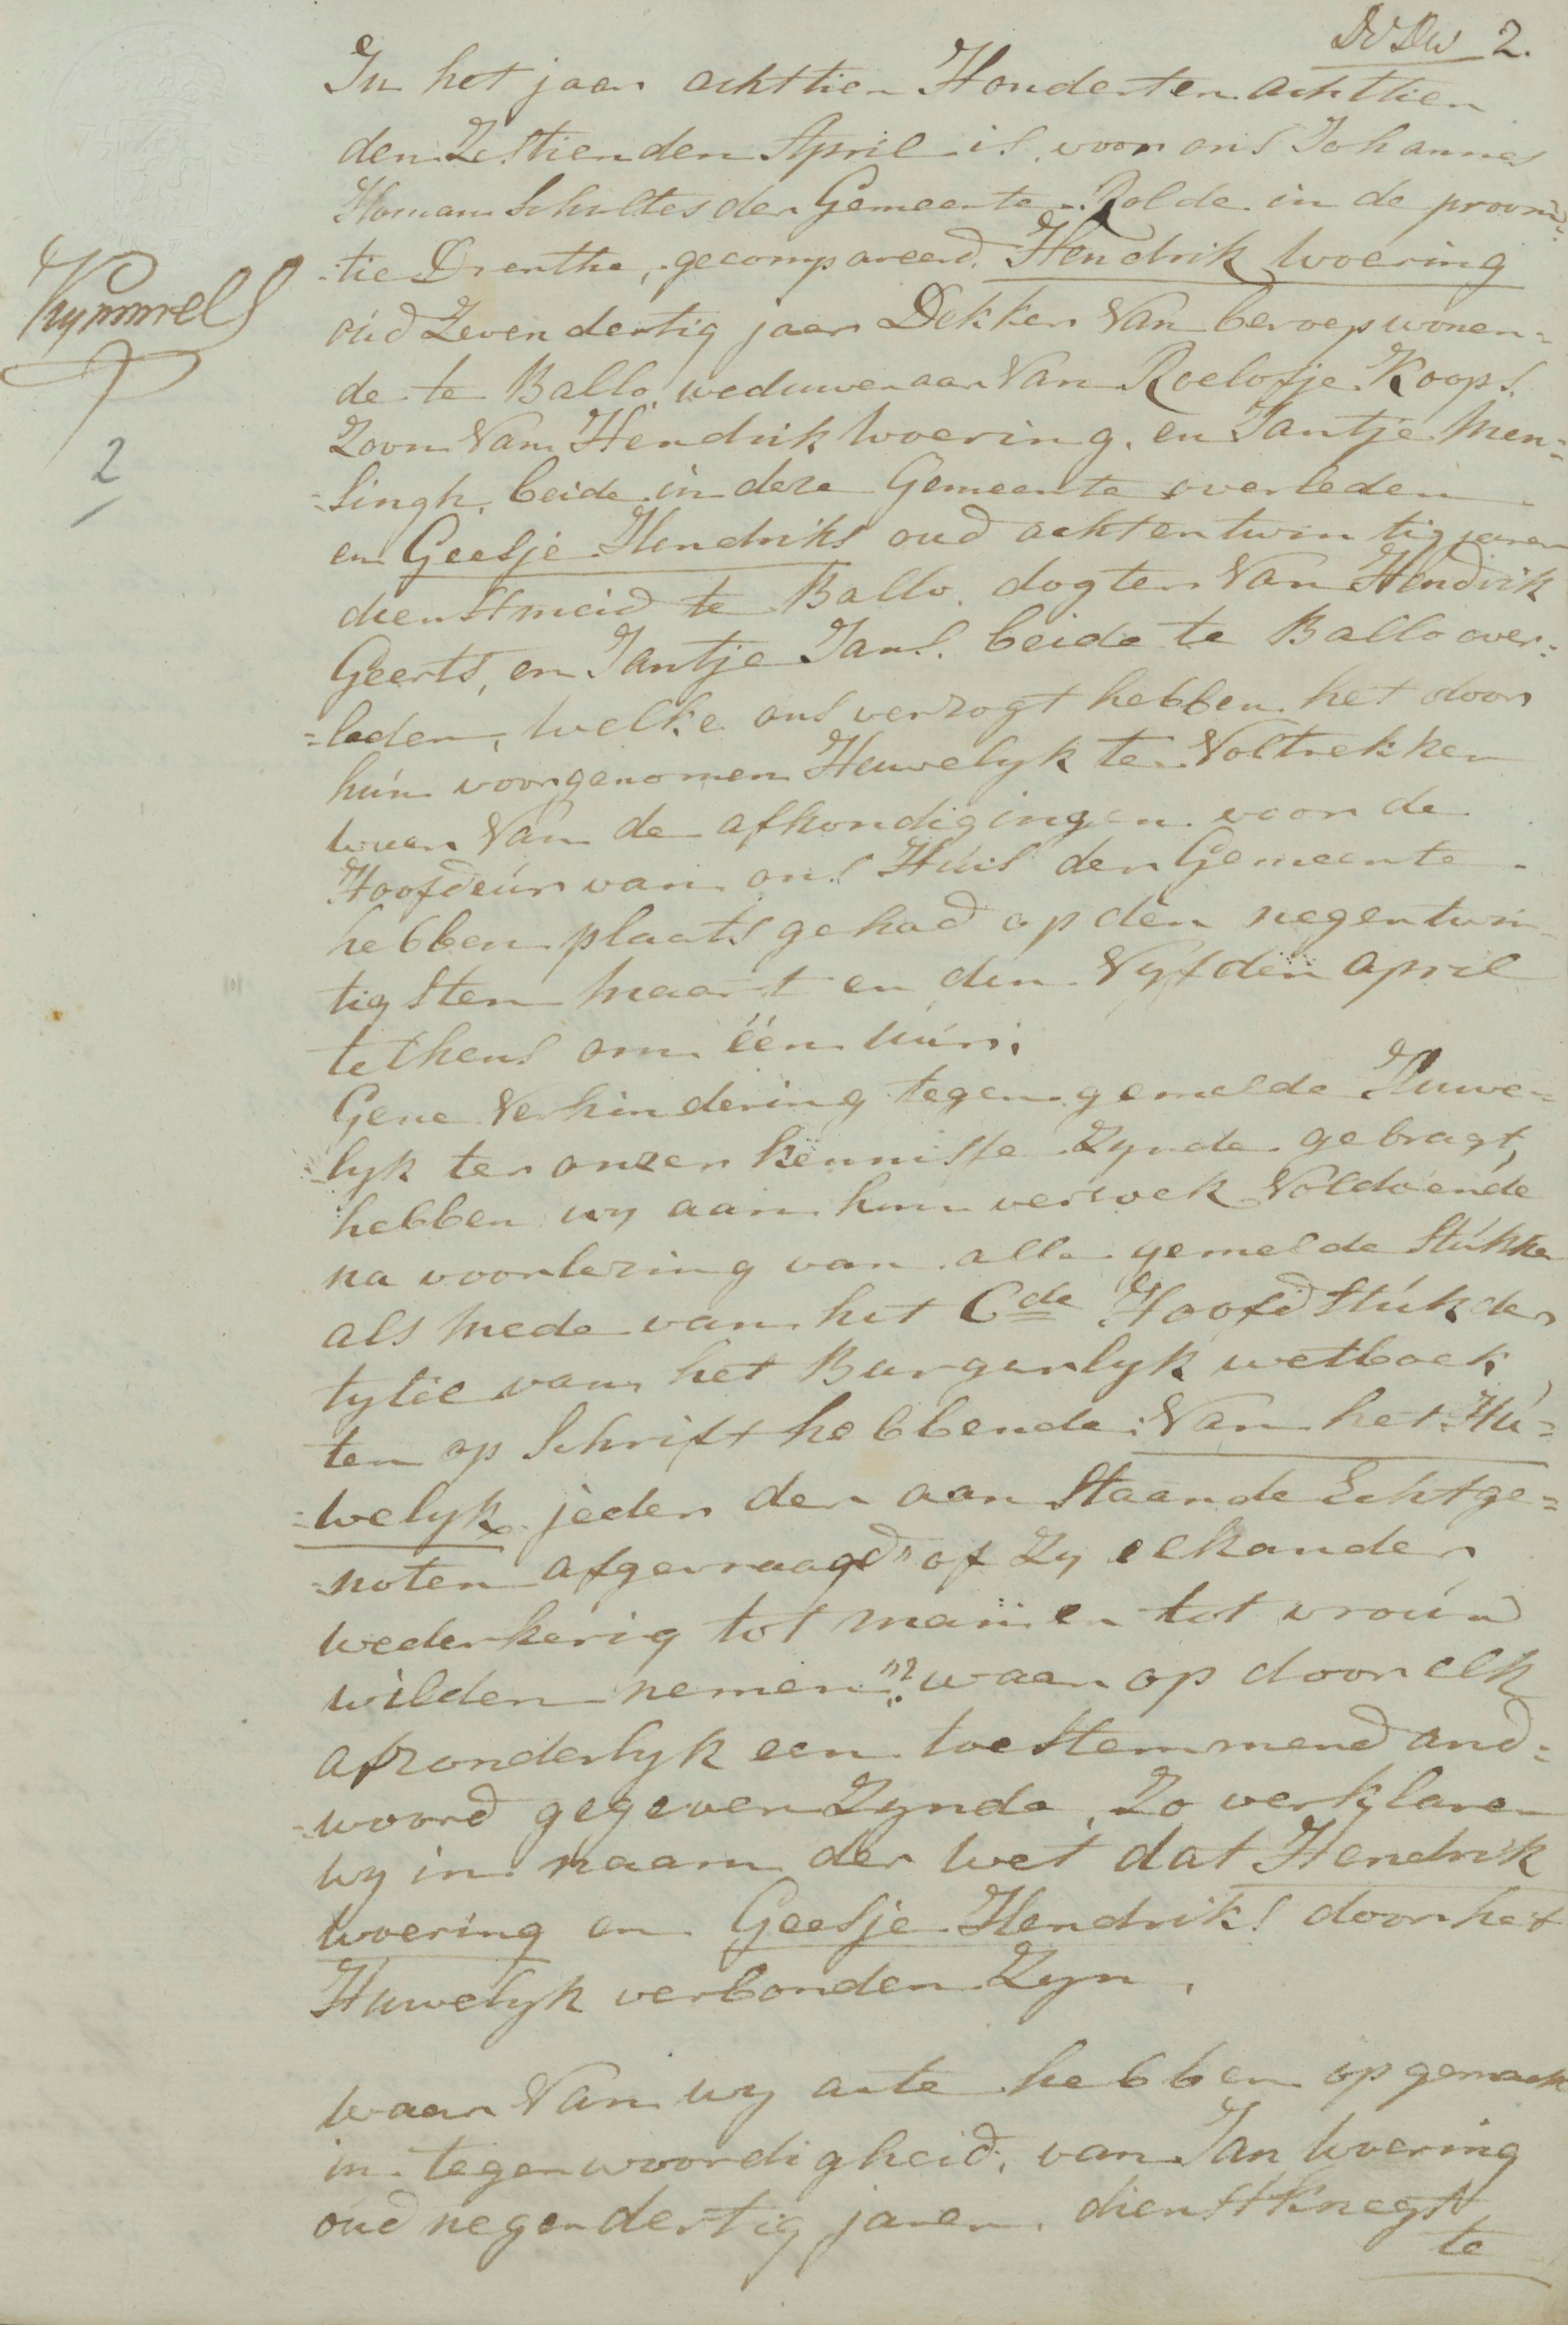 2.
In het jaar achttien Hondert en achttien
den Zestienden April is voor ons Johannes
Homan Schultes der Gemeente Rolde in de provin=
=tie Drenthe, gecompareerd Hendrik Woering
oud Zevendertig jaar Dekker Van beroep wonen=
de te Ballo, weduwenaar Van Roelofje Koops.
Zoon Van Hendrik Woering. en Jantje Men=
=singh. beide in deze Gemeente overleden
en Geesje Hendriks oud achtentwintig jaren
dienstmeid te Ballo. dogter Van Hendrik
Geerts, en Jantje Jans. beide te Ballo over=
=leden, Welke ons verzogt hebben het door
hún voorgenomen Huwelyk te Voltrekken
waar Van de afkondigingen voor de
Hoofdeúr van ons Húis der Gemeente
hebben plaats gehad op den negentwin
tigsten Maart en den Vyfden april
telkens om één úúr.
Gene Verhindering tegen gemelde Huwe=
lyk ter onzer kennisse Zynde gebragt,
hebben wy aan hun verzoek Voldoende
na voorlezing van alle gemelde Stúkke
als mede van het 6de Hoofdstúk der
tytel van het Burgerlyk wetboek
ten op Schrift hebbende: Van het Hú=
=welyk jeder der aan Staande Echtge=
=noten afgevraagd" of Zy elkander
wederkerig tot man en tot vroúw
wilden nemen"? waar op door elk
afzonderlyk een toestemmend and=
=woord gegeven Zynde, Zo verklaren
wy in naam der Wet dat Hendrik
Woering en Geesje Hendriks door het
Huwelyk verbonden Zyn.
Waar Van wy acte hebben opgemaakt
in tegenwoordigheid. van Jan Woering
oud negendertig jaren. dienstknegt
te
Kymmel
2